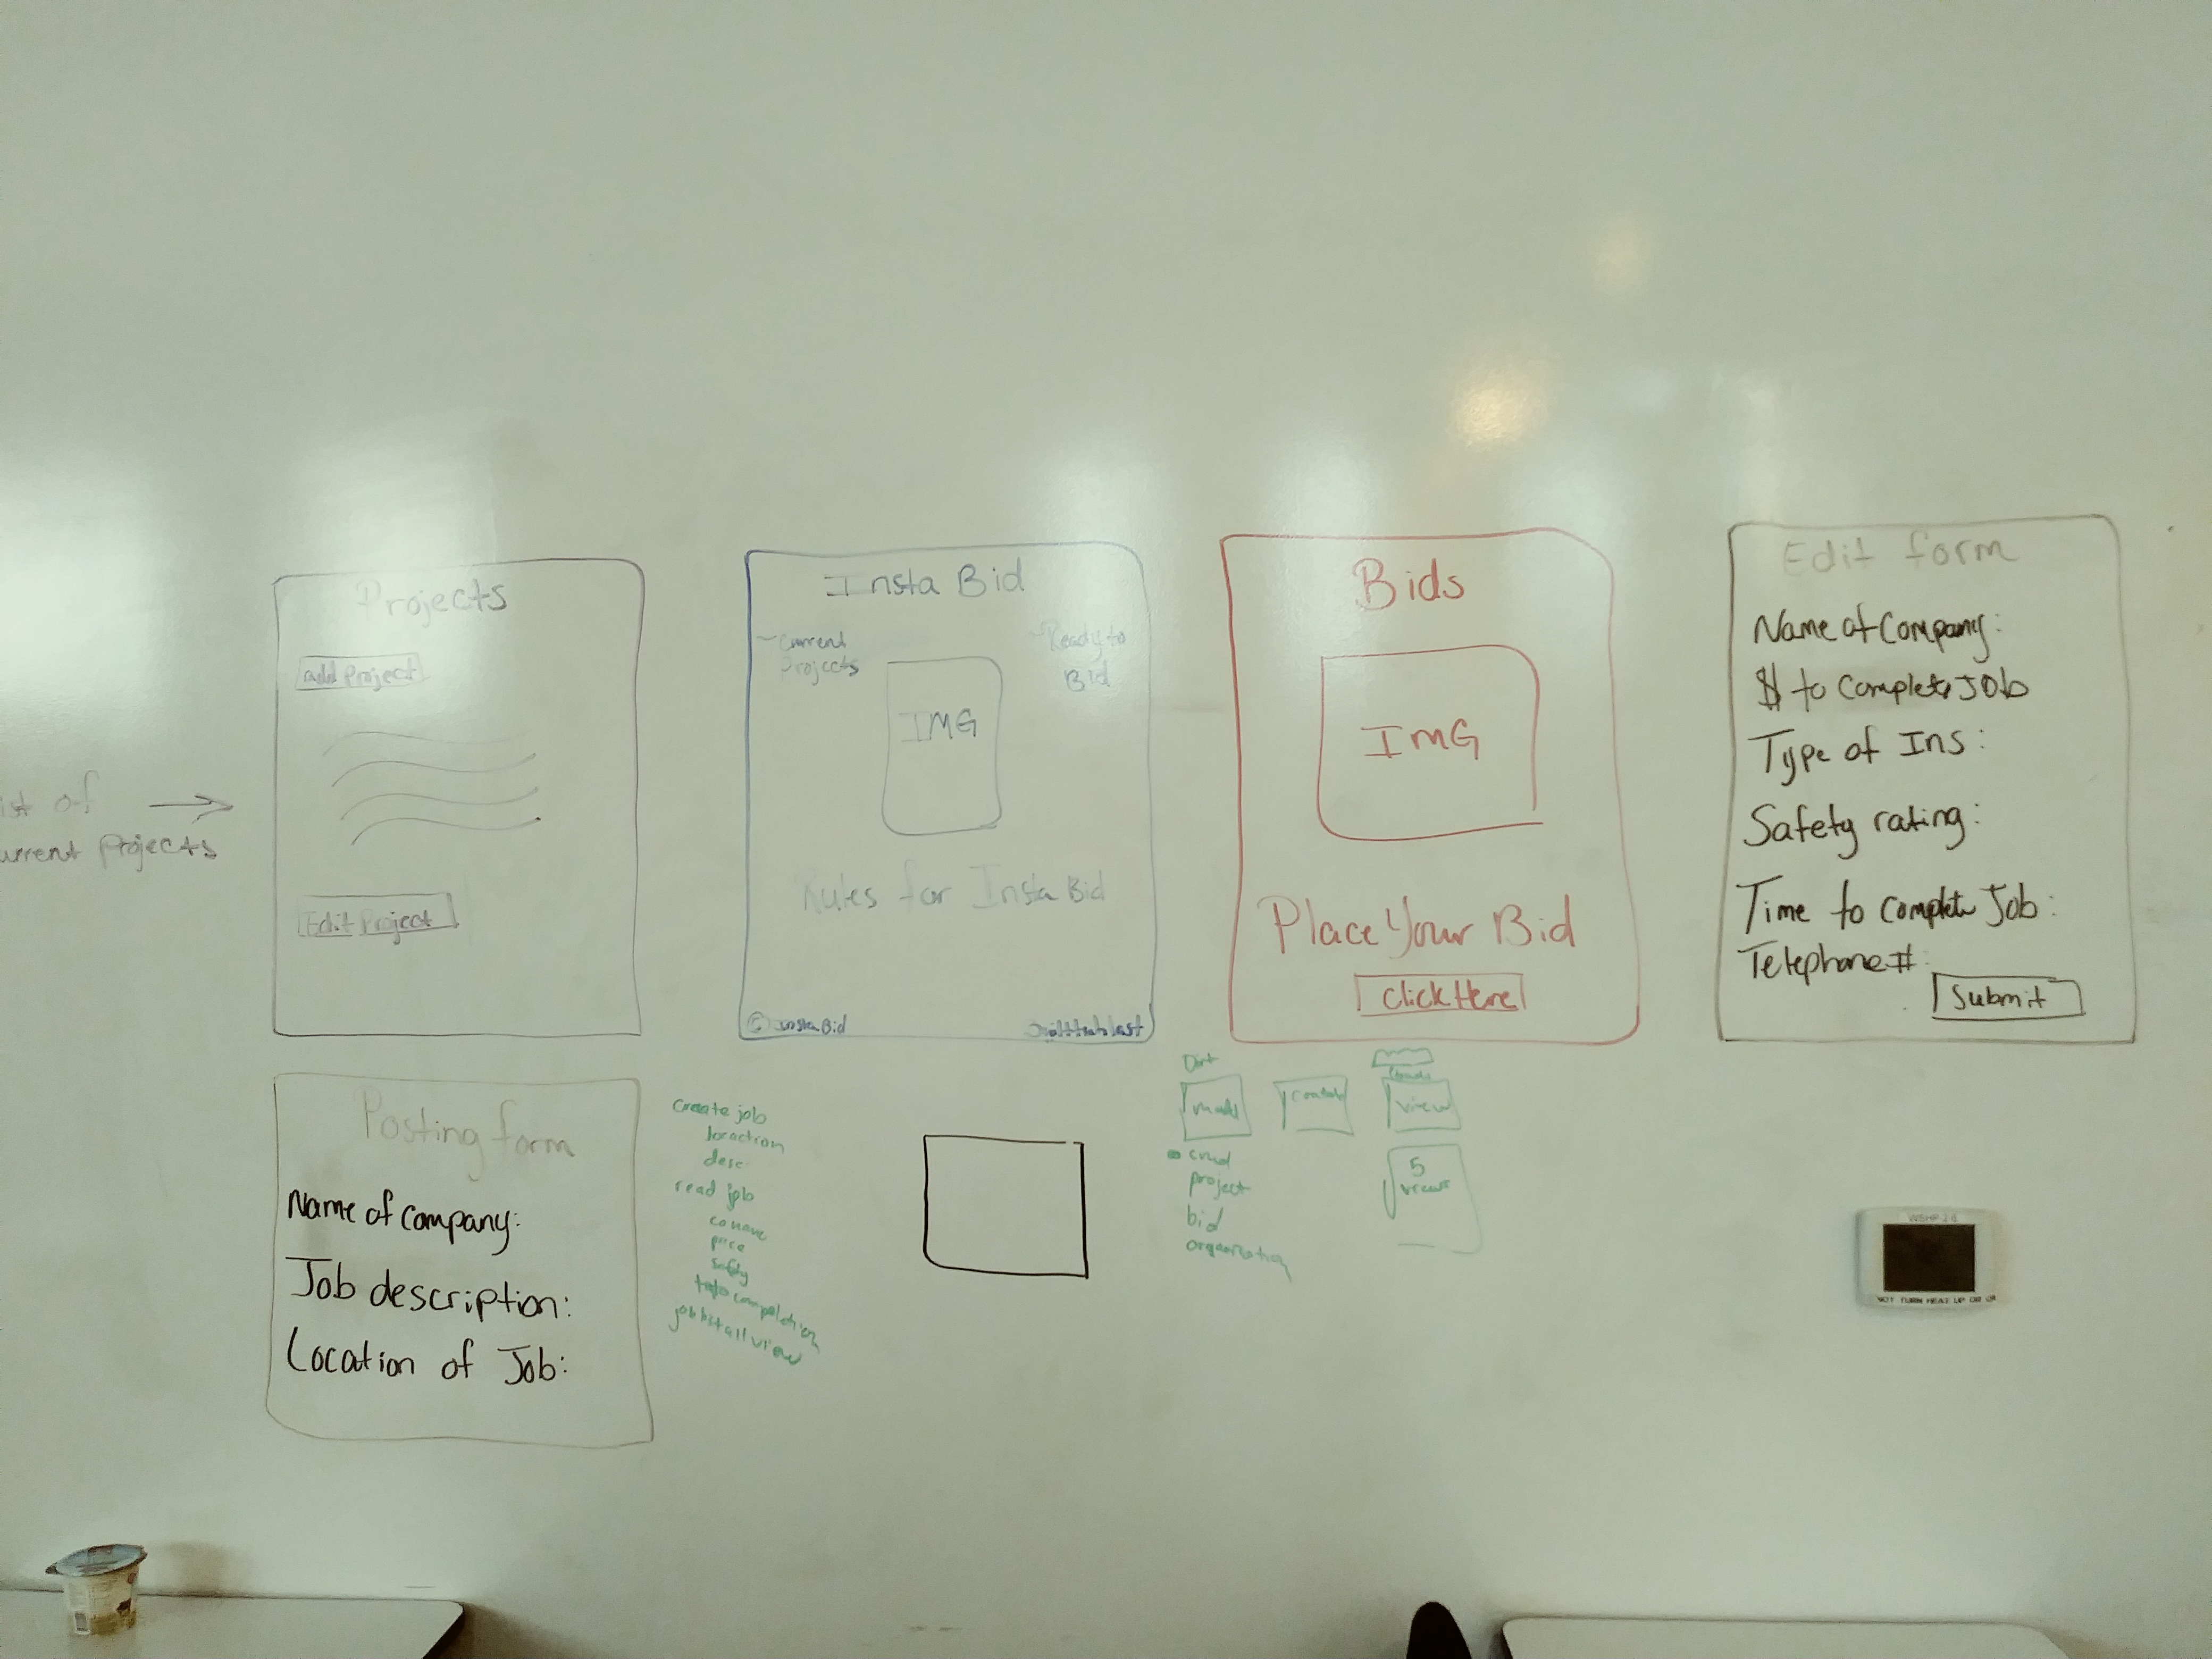 Projects
add Project
ist of
urrent Projects
Edit Project
Insta Bid
Current
Projects
Ready to
Bid
IMG
Rules for Insta Bid
© Insta Bid
Bids
IMG
Place Your Bid
Click Here
Edit form
Name of Company:
$ to Complete Job
Type of Ins:
Safety rating:
Time to Complete Job:
Telephone #:
Submit
Posting form
Name of Company:
Job description:
Location of Job:
Create job
desc
read job
price
job list all view
view
crud
project
bid
5
views